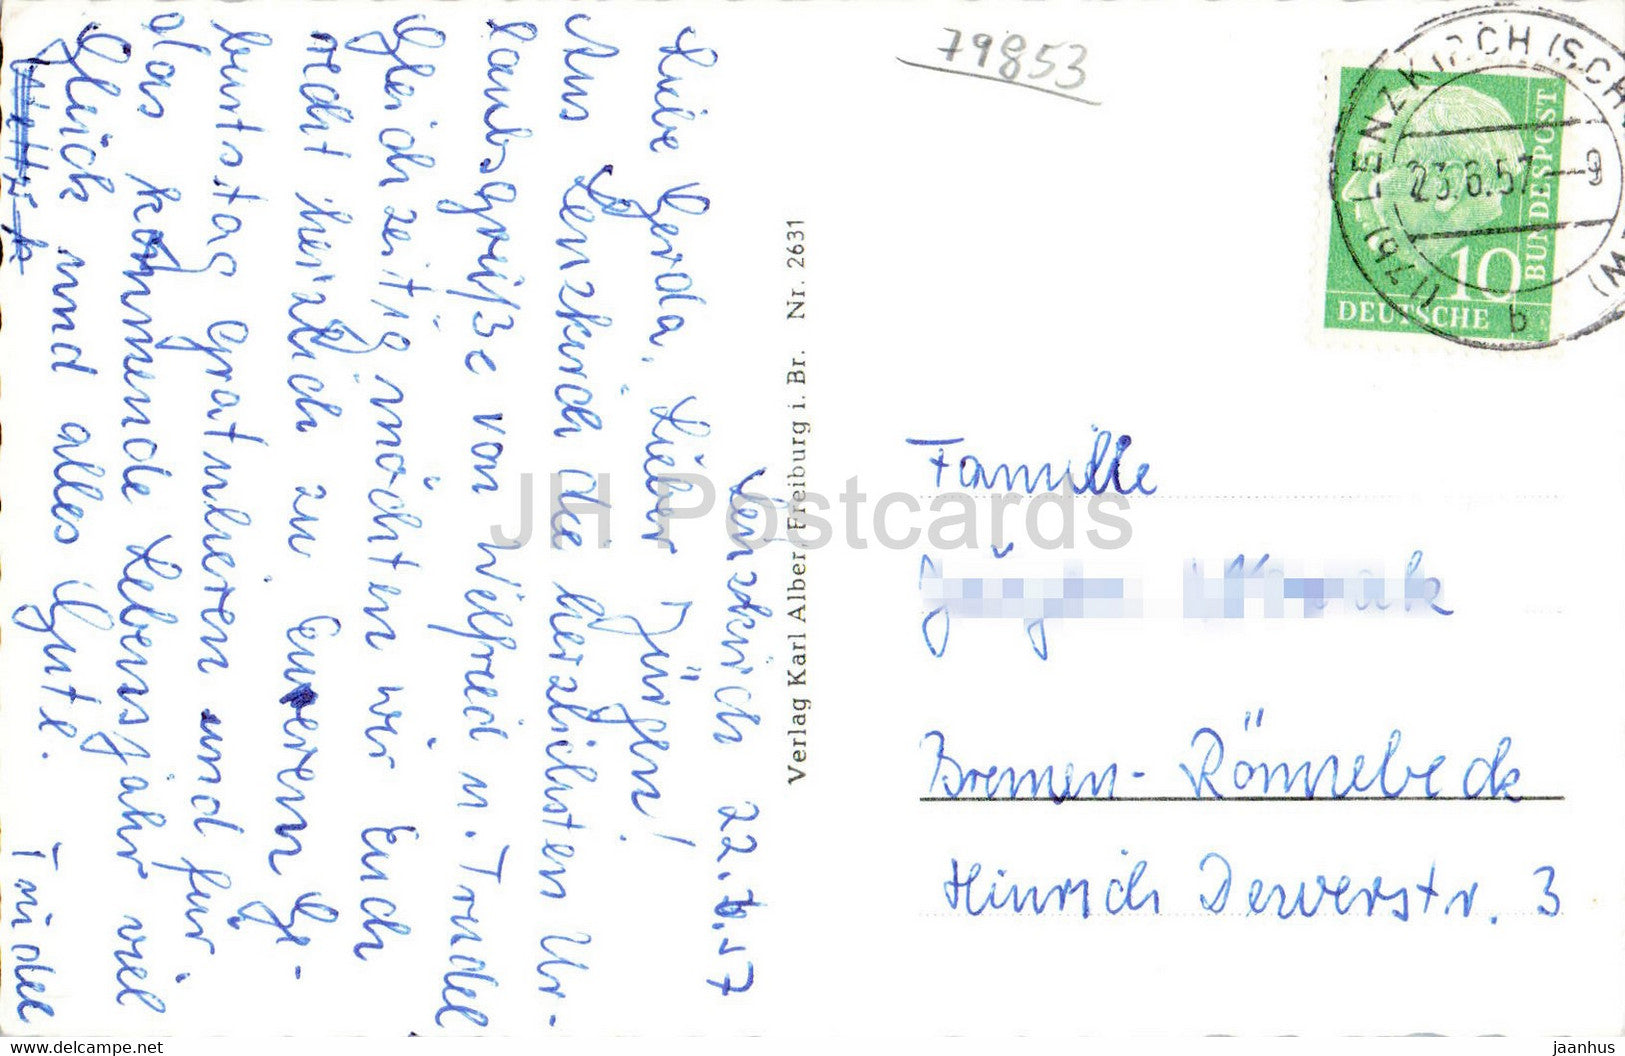 79853
(17b) LENZKIRCH (SCH
23.6.57.-9
b
DEUTSCHE
BUNDESPOST
10
Lenzkirch 22.6.57
Liebe Gerda, Lieber Jürgen!
Aus Lenzkirch die herzlichsten Ur-
laubsgrüße von Wilfried u. Trudel
Gleichzeitig möchten wir Euch
recht herzlich zu Eueren Ge-
burtstag Gratulieren und für
das kommende Lebensjahr viel
Glück und alles Gute. Trudel
Verlag Karl Alber, Freiburg i. Br. Nr. 2631
Familie
Bremen-Rönnebeck
Hinrich Dewerstr. 3
JH Postcards
www.delcampe.net
jaanhus